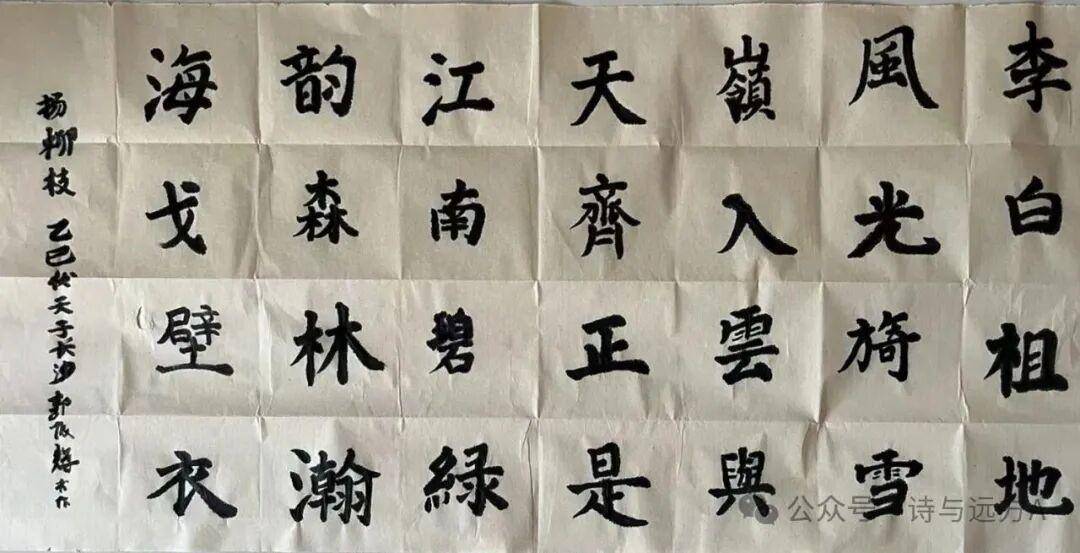 李白祖地
風光旖雪
嶺入雲與
天齊正是
江南碧緑
韵森林瀚
海戈壁衣
杨柳枝 乙巳伏天于长沙郭
公众号 诗与远方A